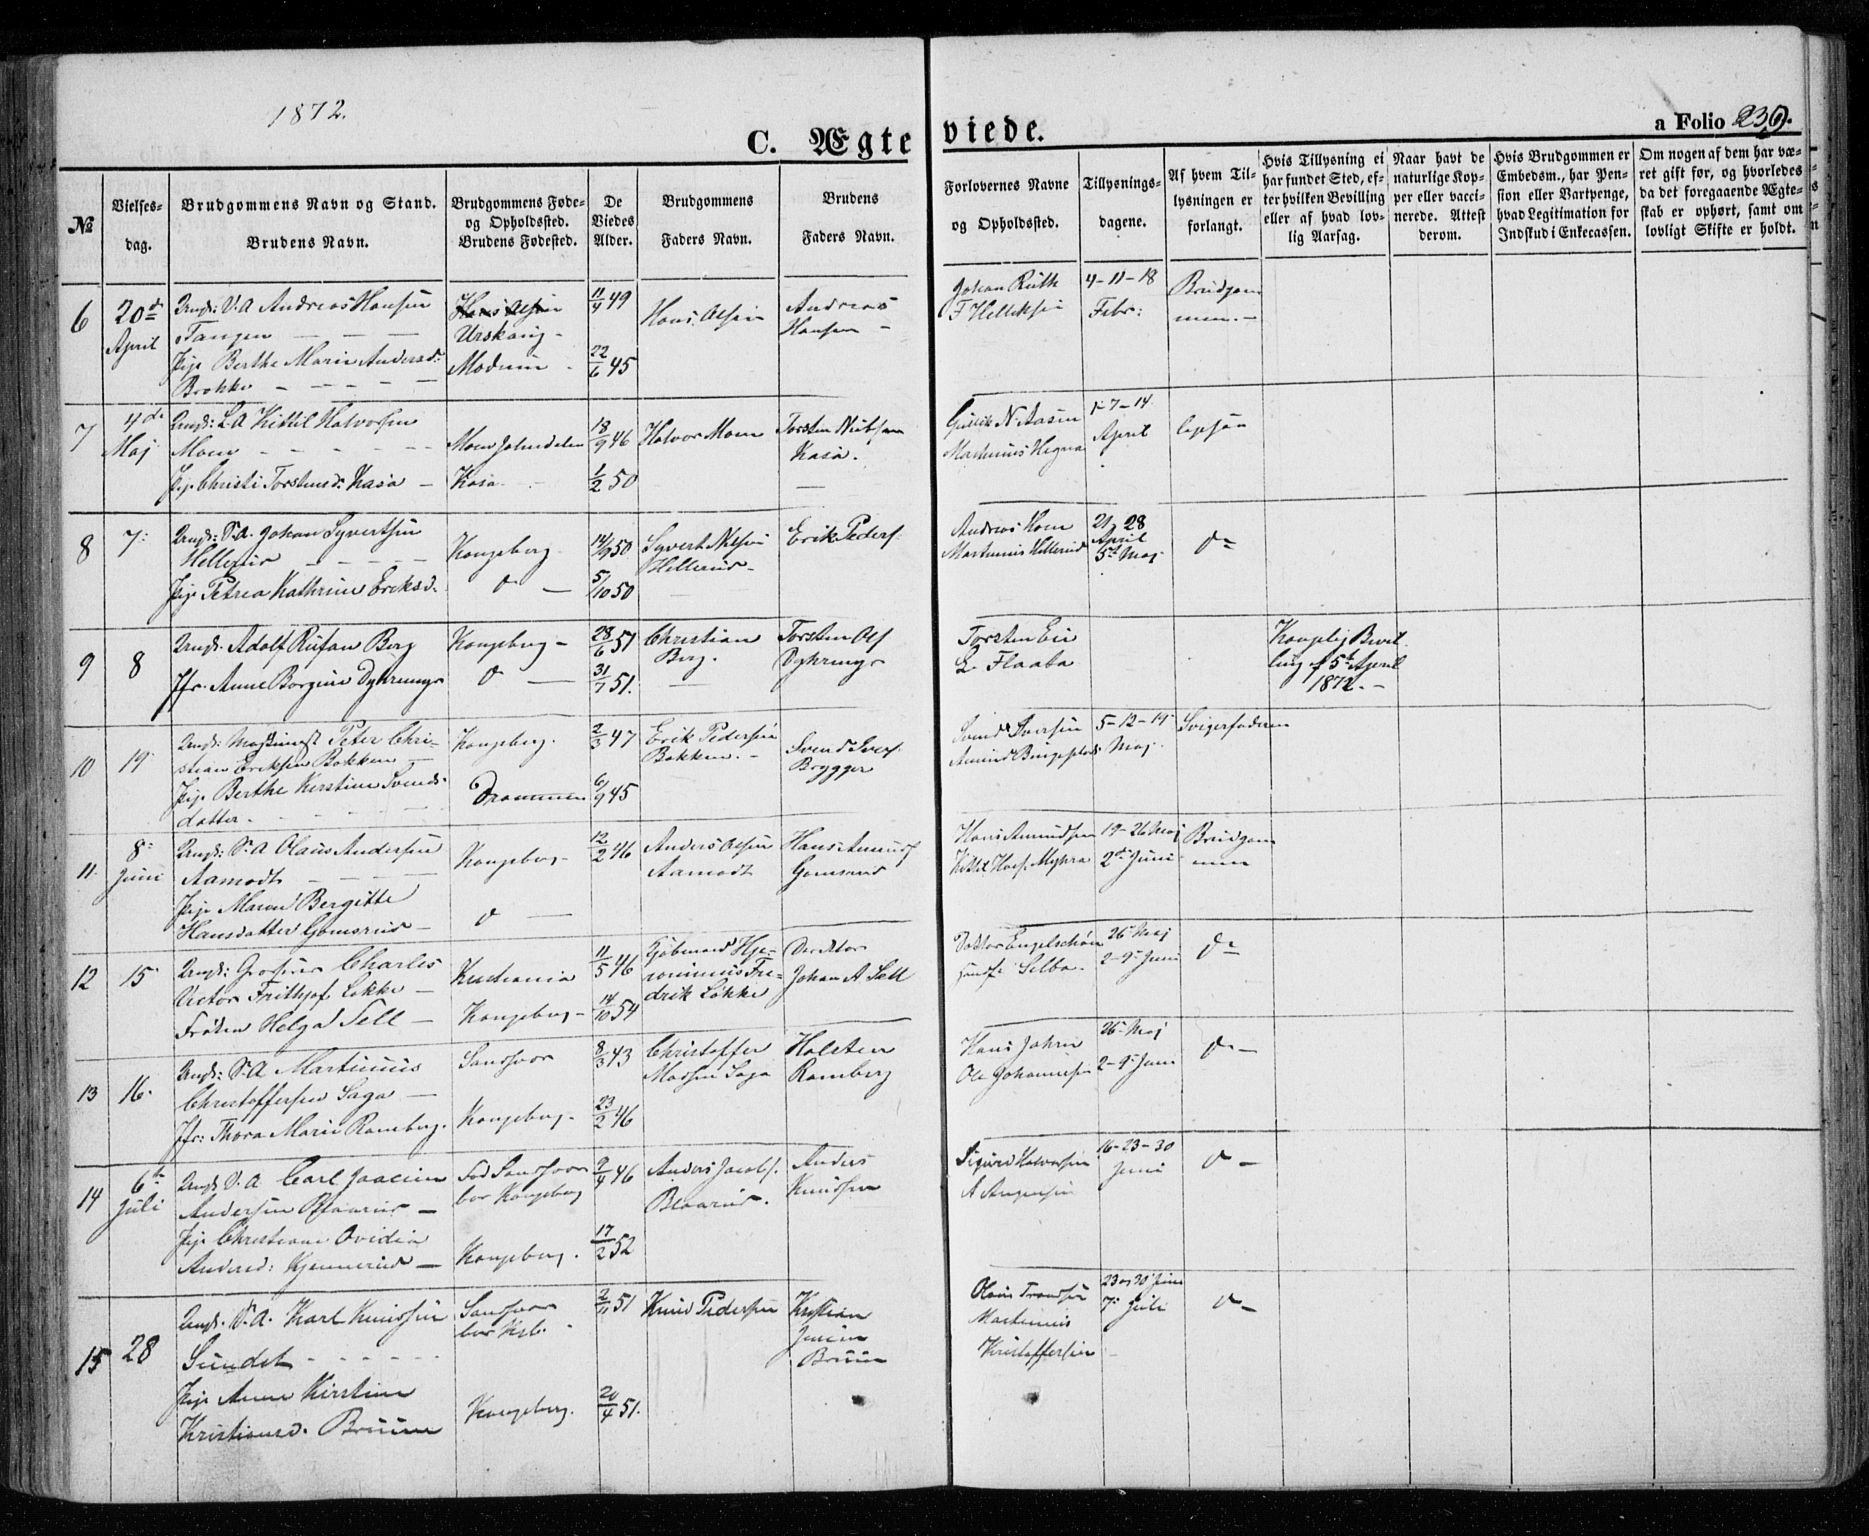 1872.
C. Ægte viede.
a Folio 239.
№
Vielses-
dag.
Brudgommens Navn og Stand.
Brudens Navn.
Brudgommens Føde-
og Opholdssted.
Brudens Fødested.
De
Viedes
Alder.
Brudgommens
Faders Navn.
Brudens
Faders Navn.
Forlovernes Navne
og Opholdssted.
Tillysnings-
dagene.
Af hvem Til-
lysningen er
forlangt.
Hvis Tillysning ei
har fundet Sted, ef-
ter hvilken Bevilling
eller af hvad lov-
lig Aarsag.
Naar havt de
naturlige Kop-
per eller vacci-
nerede. Attest
derom.
Hvis Brudgommen er
Embedsm., har Pen-
sion eller Vartpenge,
hvad Legitimation for
Indskud i Enkecassen.
Om nogen af dem har væ-
ret gift før, og hvorledes
da det foregaaende Ægte-
skab er ophørt, samt om
lovligt Skifte er holdt.
6
20de
April
Ungk: S.A Andreas Hansen
Tangen
Pige Berthe Marie Andersd:
Brokke
Hans Olsen
Urskoug
Modum
11/4 49
22/6 45
Hans Olsen
Andreas
Hansen
Johan Ruth
F Helleksen
4-11-18
Febr:
Brudgom
men
7
4de
Maj
Ungk: S.A Kittil Halvorsen
Moen
Pige Christi Torstensd: Kasa
Moen Jondalen
Kasa
18/9 46
1/2 50
Halvor Moen
Torsten
Kasa.
Gullik N. Aasen
Martinius Hegna
1-7-14
April
8
7:
Ungk: S.A. Johan Syvertsen
Hellerud
Pige Petrea Kathrine Eriksd.
Kongsberg
do
14/9 50
5/10 50
Syvert Nilsen
Hellerud
Erik Peders.
Andreas Moen
Martinius Hellerud
21, 28
April
5te Maj
do
9
8
Ungk. Adolf Rufan Berg
Jfr. Anne Borgine Dyhrings
Kongsberg
do
28/6 51
31/7 51.
Christian
Berg.
Torsten Ols
Dyhrings
Torsten Eie
E. Flaata
Kongelig Bevil
ling f 5te April
1872.
10
19
Ungk: Maskinist Peter Chri-
stian Eriksen Bakken
Pige Berthe Kirstine Svends-
datter.
Kongsberg.
Drammen
2/3 47
6/9 45
Erik Pedersen
Bakken.
Svend Ivers.
Brygger
Svend Iversen
5-12-19
Maj.
Svigerfaderen
11.
8de
Juni
Ungk: S.A Olaus Andersen
Aamodt
Pige Maren Bergitte
Hansdatter Gomsrud
Kongsberg
do
12/2 46
Anders Olsen
Aamodt
Hans Amunds
Gomsrud
Hans Amundsen
Kittil Hals. Myhra
19-26 Maj
2den Juni
Brudgom
men
12
15
Ungk: Grosserer Charles
Victor Frithjof Løkke
Frøken Helga Sell
Kristiania
Kongsberg
11/5 46
14/10 54
Kjøbmand Hje-
ronimus Fre-
drik Løkke
Direktor
Johan A Sell
Doktor Engelschiøn
26 Maj
2-9 Juni
do
13
16
Ungk: S.A Martinius
Christoffersen Saga
Jfr: Thora Marie Ramberg.
Sandsver
Kongsberg
8/3 43
23/2 46
Christoffer
Saga
Holsten
Ramberg
Hans Jahren
Ole Johannesen
26 Maj
2-9 Juni
do
14
6te
Juli
Ungk. S.A Carl Joacim
Andersen Blaarud
Pige Christiane Ovidia
Andersd: Kjennerud
Fød Sandsver
bor Kongsberg
Kongsberg.
9/4 46
17/2 52
Anders Jacobs.
Blaarud.
Anders
Knudsen
Sigurd Halvorsen
16-23-30
Juni
do
15
28
Ungk. S.A. Karl Knudsen
Sundet
Pige Anne Kirstine
Kristiansd. Bruun
Sandsver
bor Ksb.
Kongsberg.
2/11 51
20/4 51.
Knud Pedersen
Kristian
Jensen
Bruun
Olaus Trondsen
Martinius
Kristoffersen
23 og 30 Juni
7de Juli
do